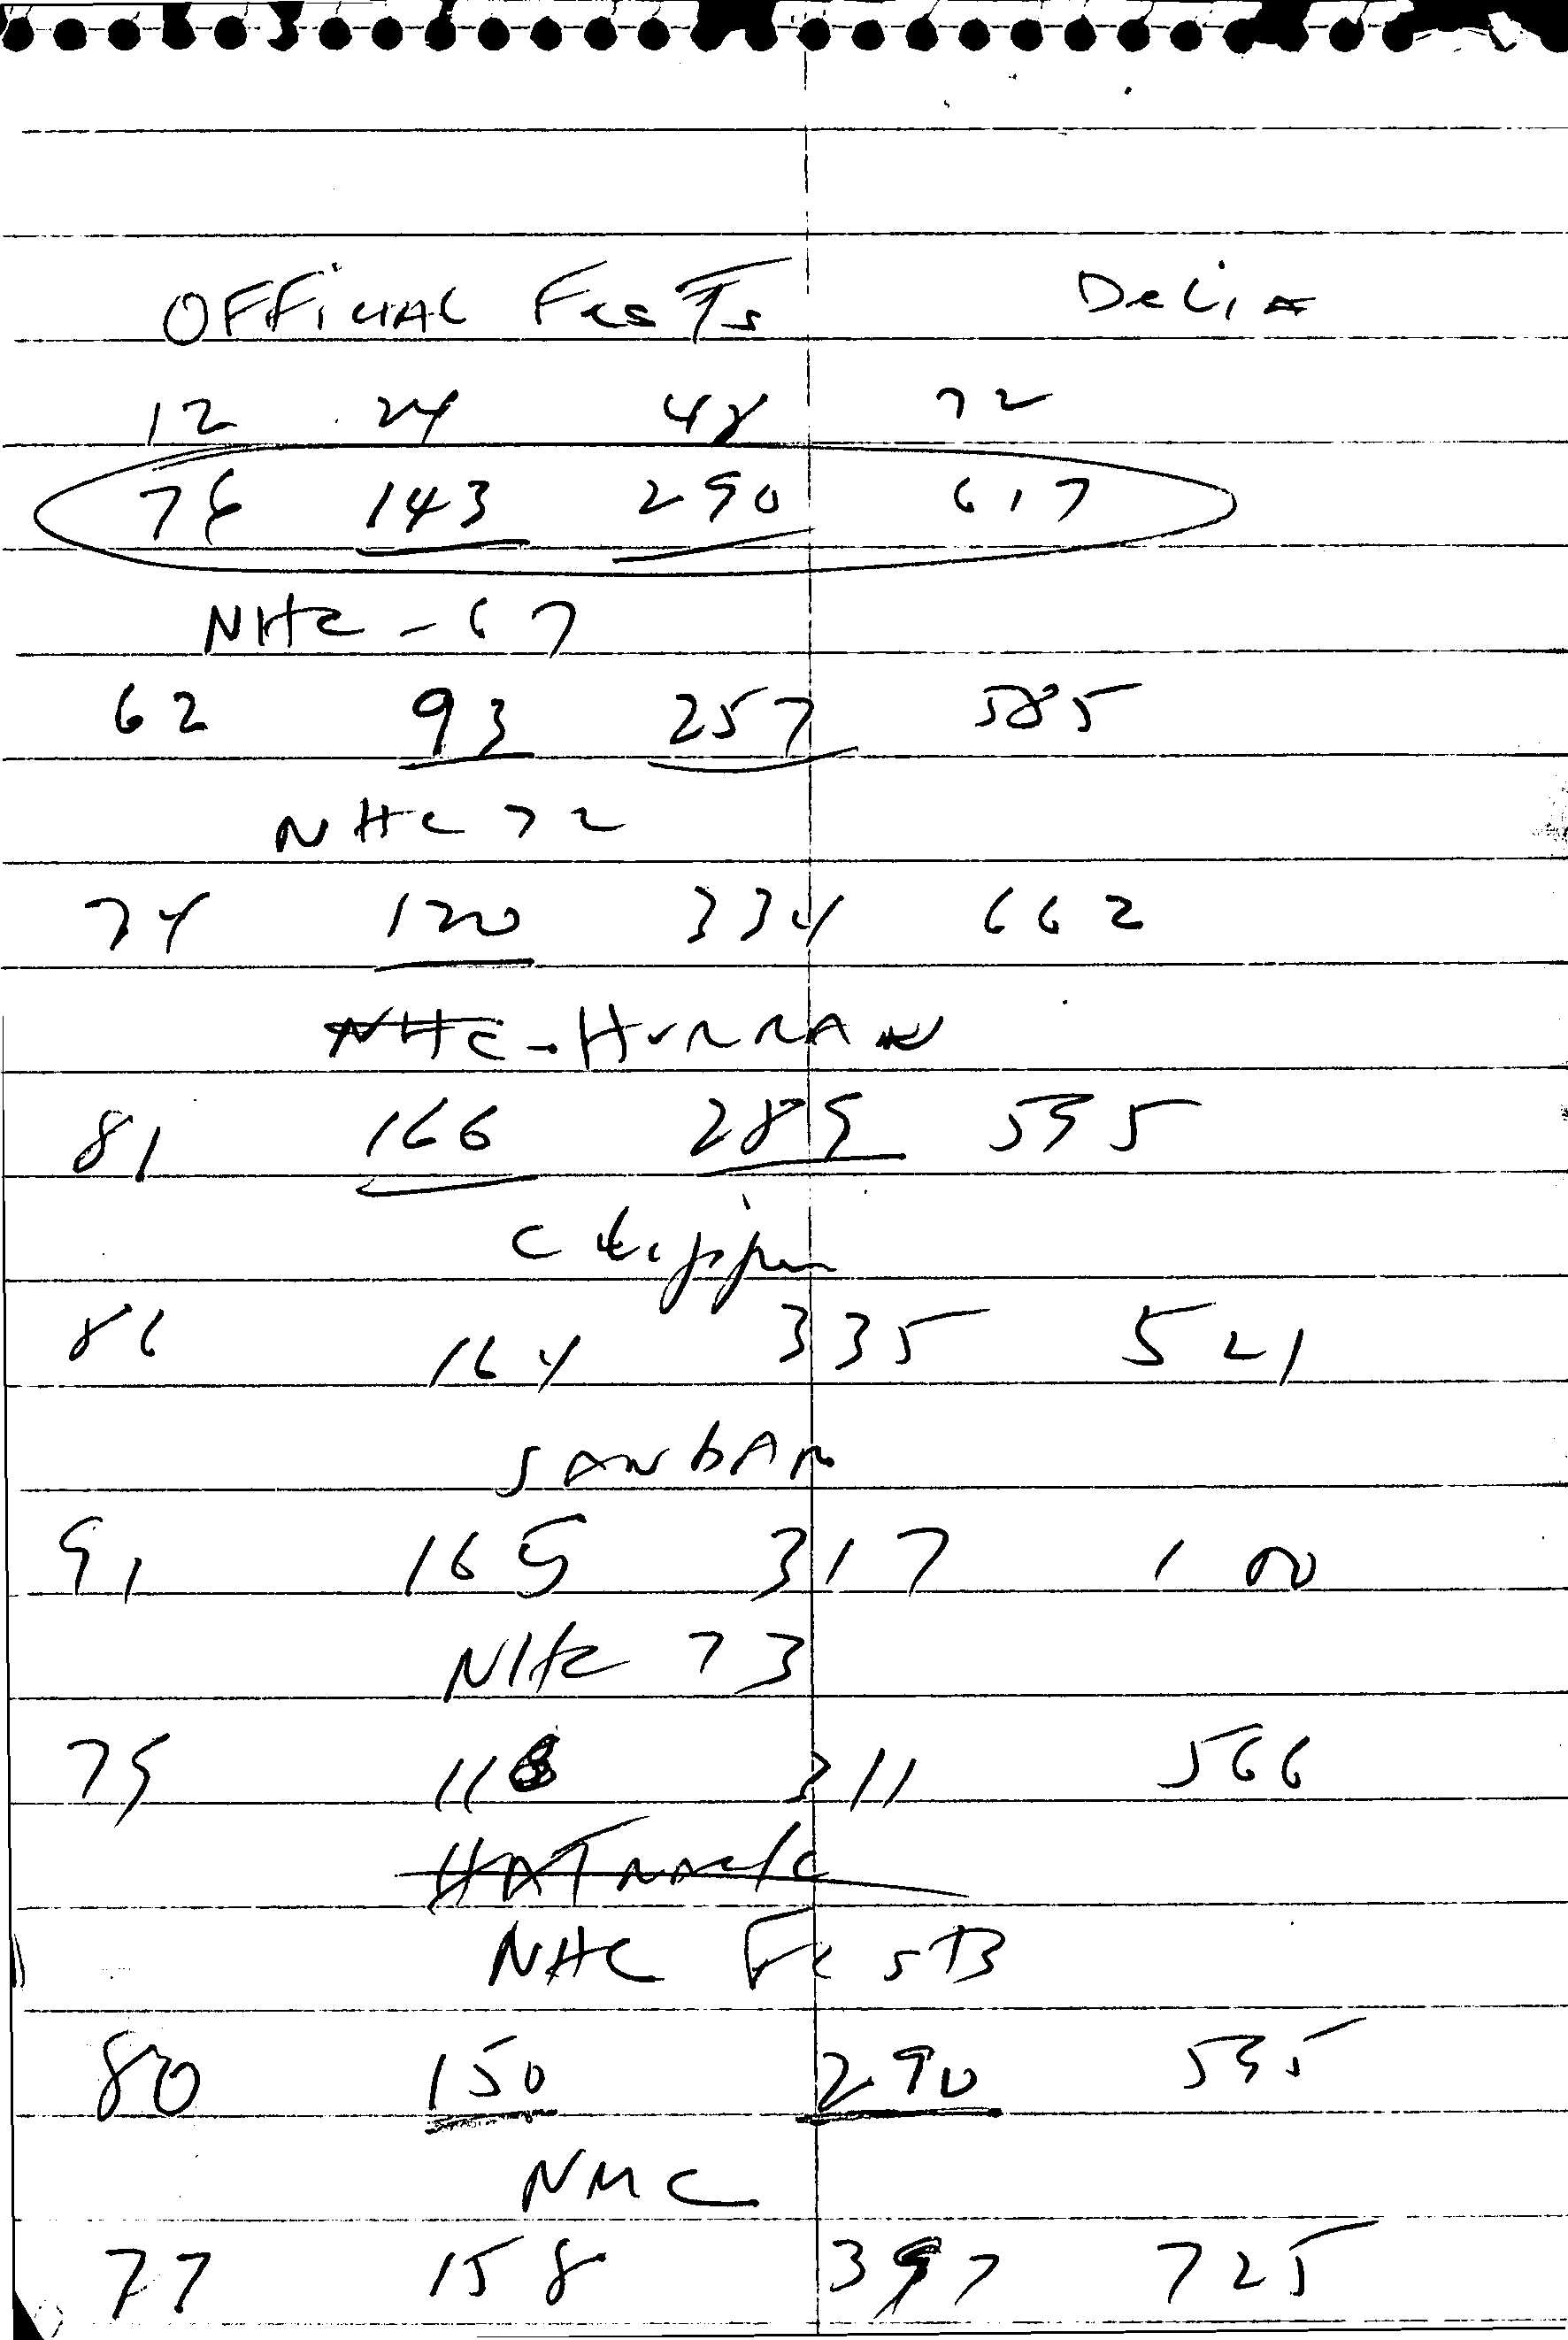 OFFICIAL FcsTs Delia
12 24 48 72
76 143 290 617
NHC - 67
62 93 257 585
NHC 72
74 120 334 662
NHC - HURRAN
81 166 289 595
Cliper
86 164 335 521
SANBAR
91 165 317 100
NHC 73
79 118 311 566
HATRACK
NHC FcsTs
80 150 290 595
NMC
77 158 397 725